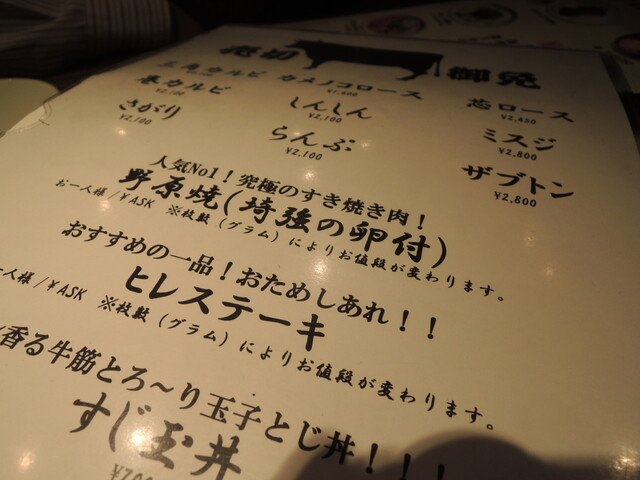 売切 御免
三角カルビ カメノコロース 芯ロース
¥2,100 ¥1,600 ¥2,450
巻カルビ しんしん ミスジ
¥2,100 ¥2,100 ¥2,800
さがり らんぷ ザブトン
¥2,100 ¥2,100 ¥2,800
人気No1！究極のすき焼き肉！
野原焼(埼強の卵付)
お一人様 /¥ASK ※枝数（グラム）によりお値段が変わります。
おすすめの一品！おためしあれ！！
ヒレステーキ
一人様 /¥ASK ※枝数（グラム）によりお値段が変わります。
香る牛筋とろ～り玉子とじ丼！！！
すじ玉丼